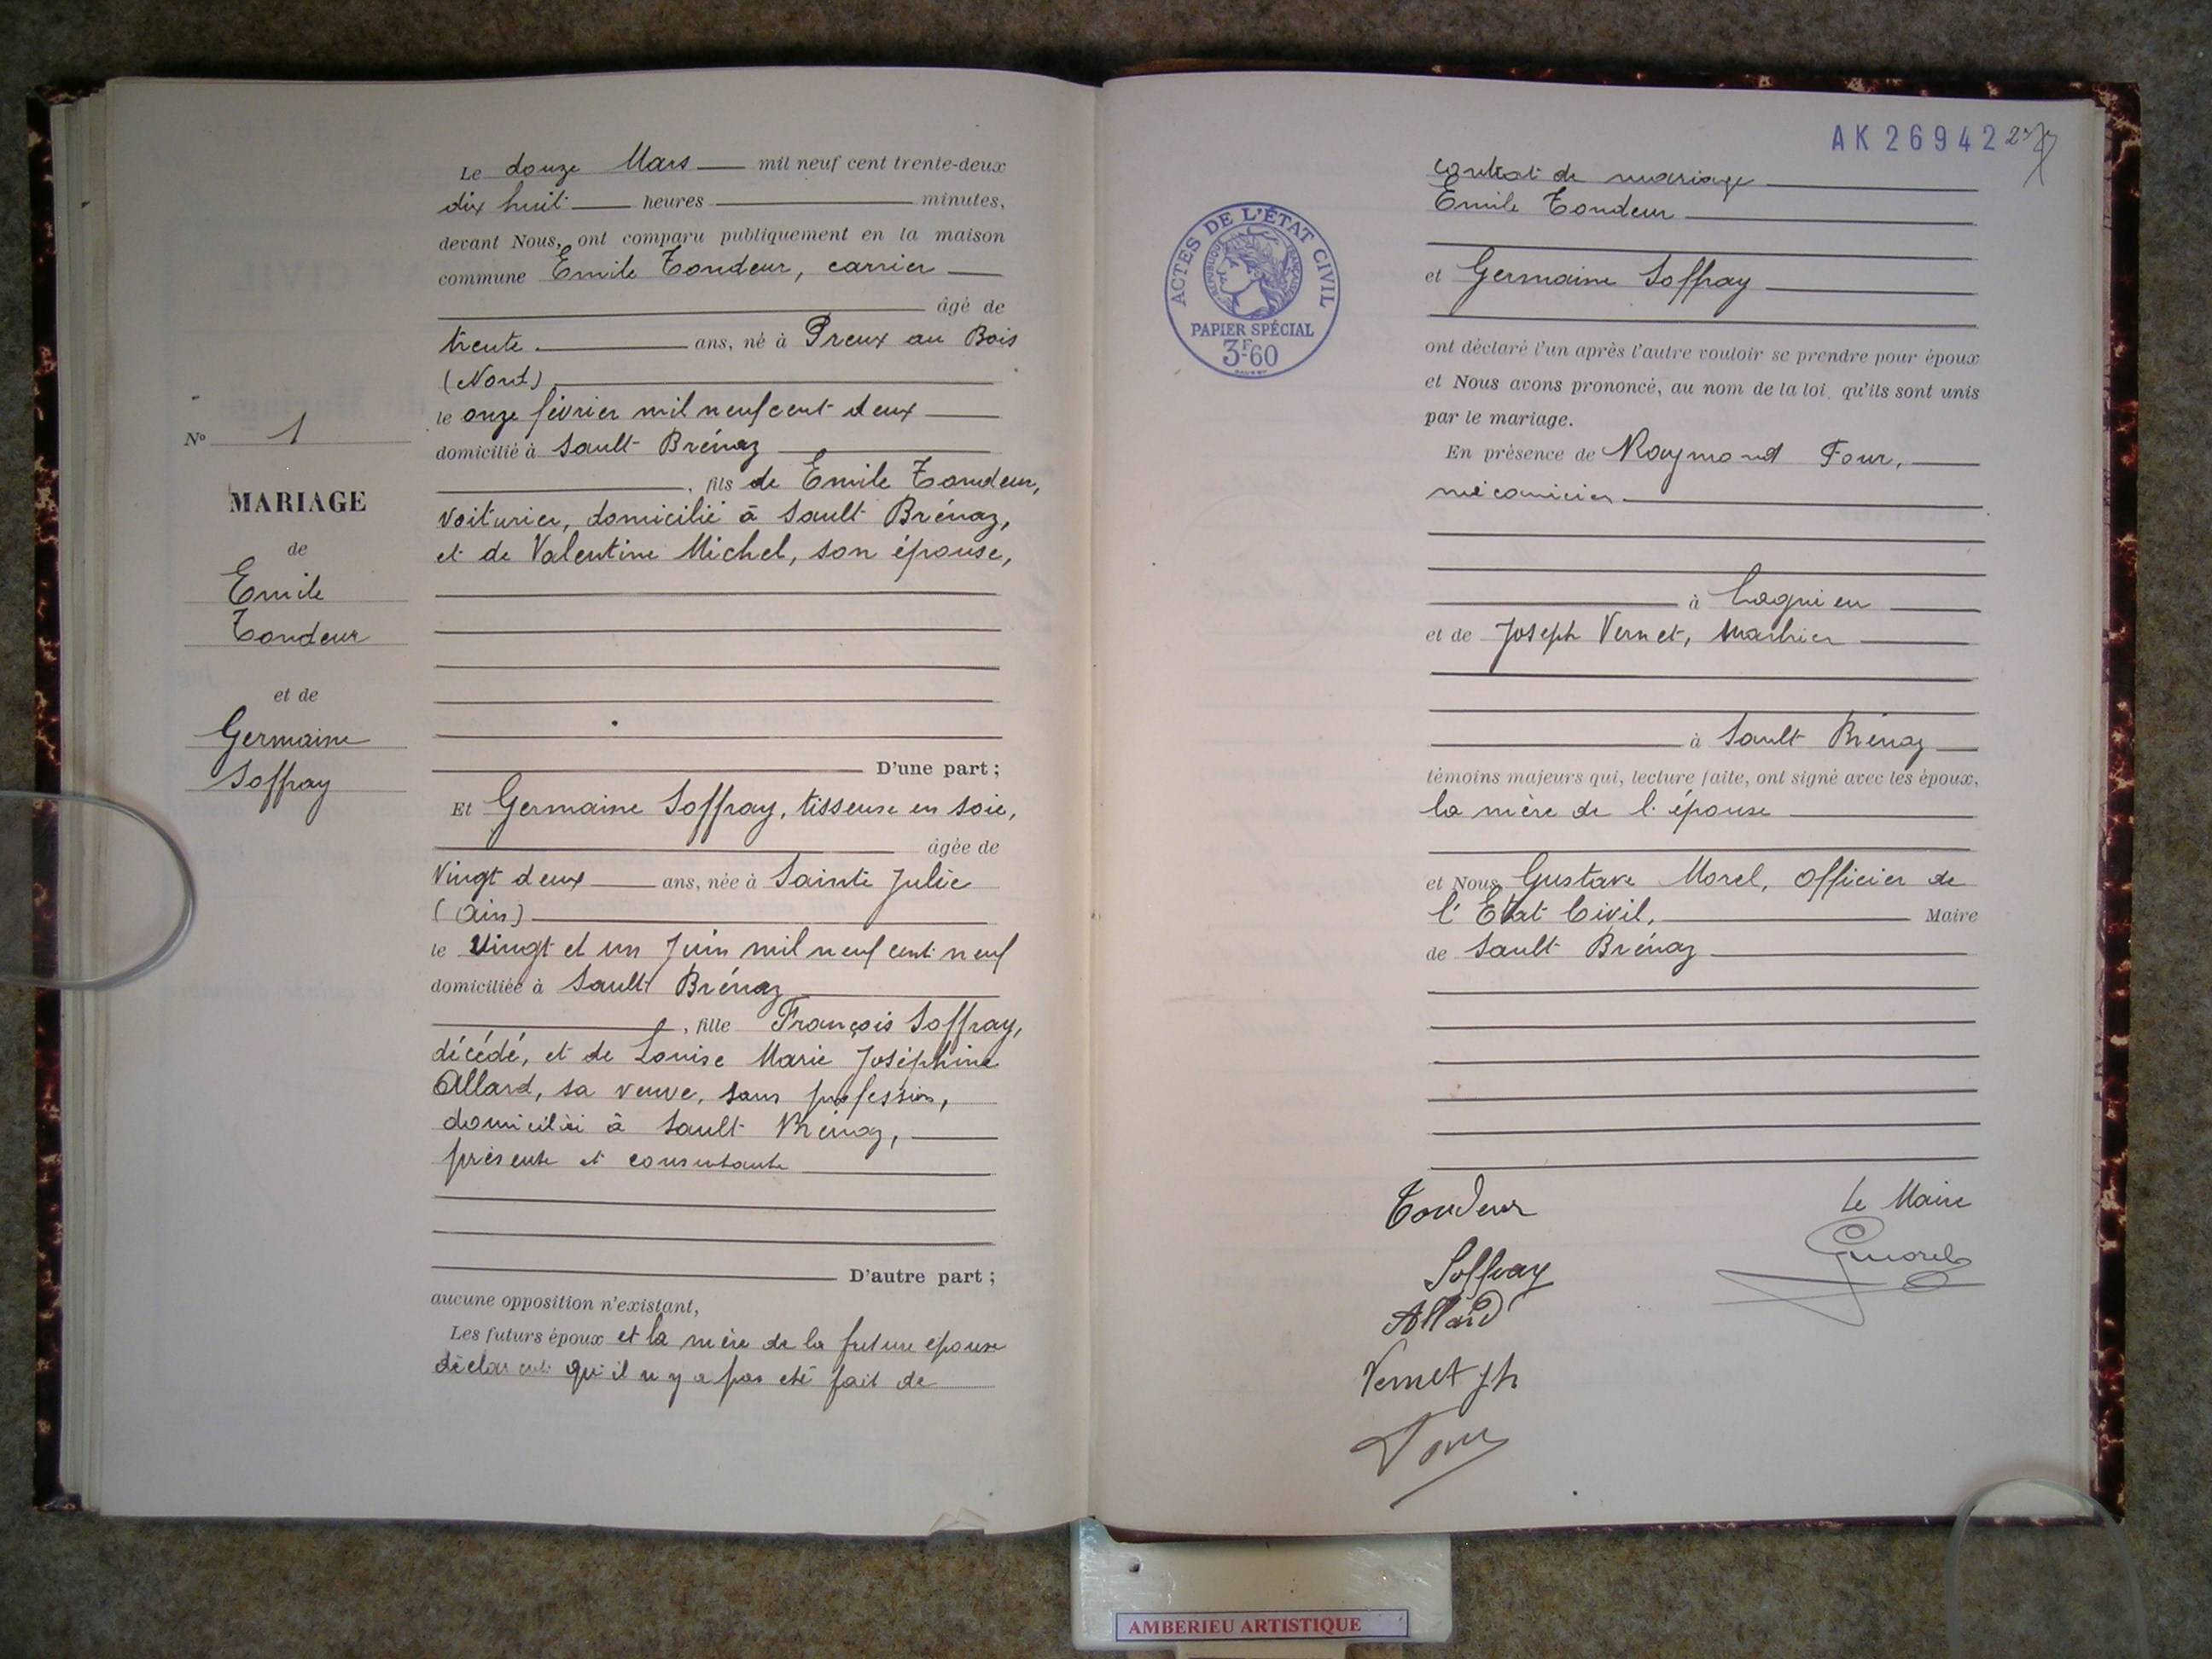 Le douze Mars mil neuf cent trente-deux
dix huit heures minutes,
devant Nous, ont comparu publiquement en la maison
commune Emile Tondeur, carrier
âgé de
trente ans, né à Preux au Bois
(Nord)
le onze février mil neuf cent deux
domicilié à Sault Brénaz
, fils de Emile Tondeur,
voiturier, domicilié à Sault Brénaz,
et de Valentine Michel, son épouse,
D'une part ;
Et Germaine Soffray, tisseuse en soie,
âgée de
Vingt deux ans, née à Sainte Julie
(Ain)
le Vingt et un Juin mil neuf cent neuf
domiciliée à Sault Brénaz
, fille François Soffray,
décédé, et de Louise Marie Joséphine
Allard, sa veuve, sans profession,
domiciliée à Sault Brénaz,
présente et consentante
D'autre part ;
aucune opposition n'existant,
Les futurs époux et la mère de la future épouse
déclarent qu'il n'y a pas été fait de
N° 1
MARIAGE
de
Emile
Tondeur
et de
Germaine
Soffray
AK 26942
contrat de mariage
Emile Tondeur
et Germaine Soffray
ont déclaré l'un après l'autre vouloir se prendre pour époux
et Nous avons prononcé, au nom de la loi, qu'ils sont unis
par le mariage.
En présence de Raymond Four,
mécanicien
à Lagnieu
et de Joseph Vernet, Marbrier
à Sault Brénaz
témoins majeurs qui, lecture faite, ont signé avec les époux,
la mère de l'épouse
et Nous, Gustave Morel, Officier de
l'Etat Civil, Maire
de Sault Brénaz
ACTES DE L'ÉTAT CIVIL
RÉPUBLIQUE FRANÇAISE
PAPIER SPÉCIAL
3F60
Tondeur
Soffray
Allard
Vernet Jh
Four
Le Maire
GMorel
AMBERIEU ARTISTIQUE